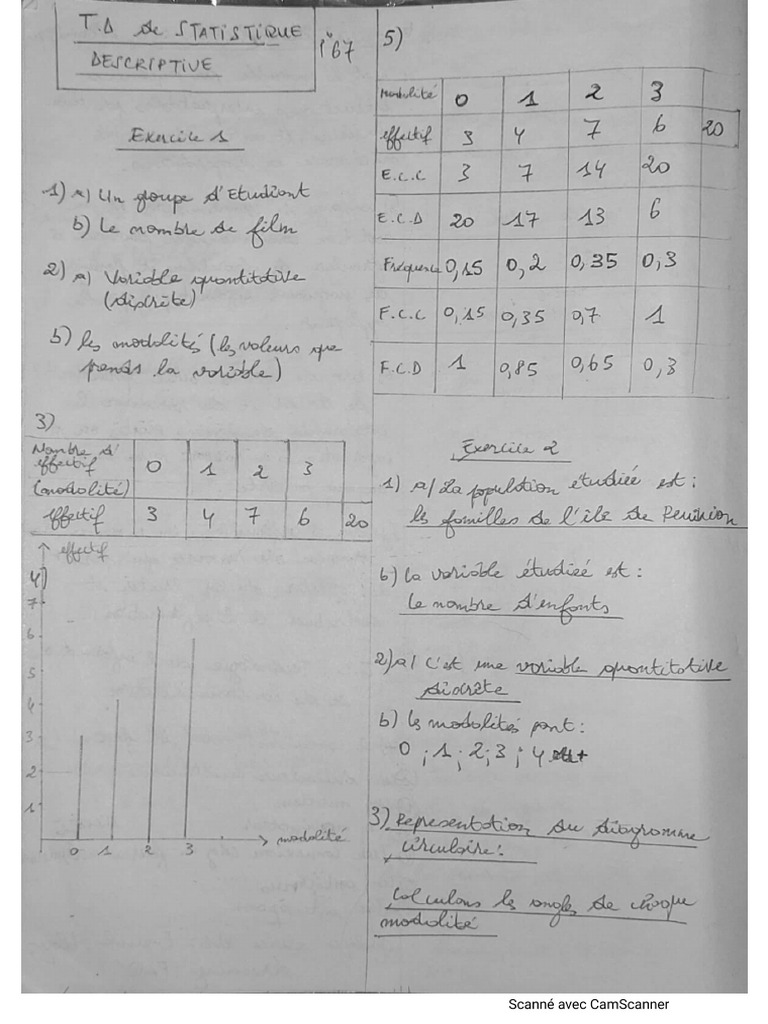 T.D de STATISTIQUE
DESCRIPTIVE
Exercice 1
1) a) Un groupe d'Etudiant
b) Le nombre de film
2) a) Variable quantitative
(discrète)
b) les modalités (les valeurs que
prends la variable)
3)
Nombre d'
effectif
(modalité) 0 1 2 3
effectif 3 4 7 6 20
effectif
4)
7
6
5
4
3
2
1
0 1 2 3 modalité
5)
Modalité 0 1 2 3
effectif 3 4 7 6 20
E.C.C 3 7 14 20
E.C.D 20 17 13 6
Fréquence 0,15 0,2 0,35 0,3
F.C.C 0,15 0,35 0,7 1
F.C.D 1 0,85 0,65 0,3
Exercice 2
1) a/ La popultion étudiéé est :
les familles de l'ile de Reunion
b) la variable étudiéé est :
le nombre d'enfants
2) a/ C'est une variable quantitative
discrète
b) les modalités sont :
0 ; 1 ; 2 ; 3 ; 4 et +
3) Representation du diagramme
circulaire :
Calculons les angles de chaque
modalité
Scanné avec CamScanner